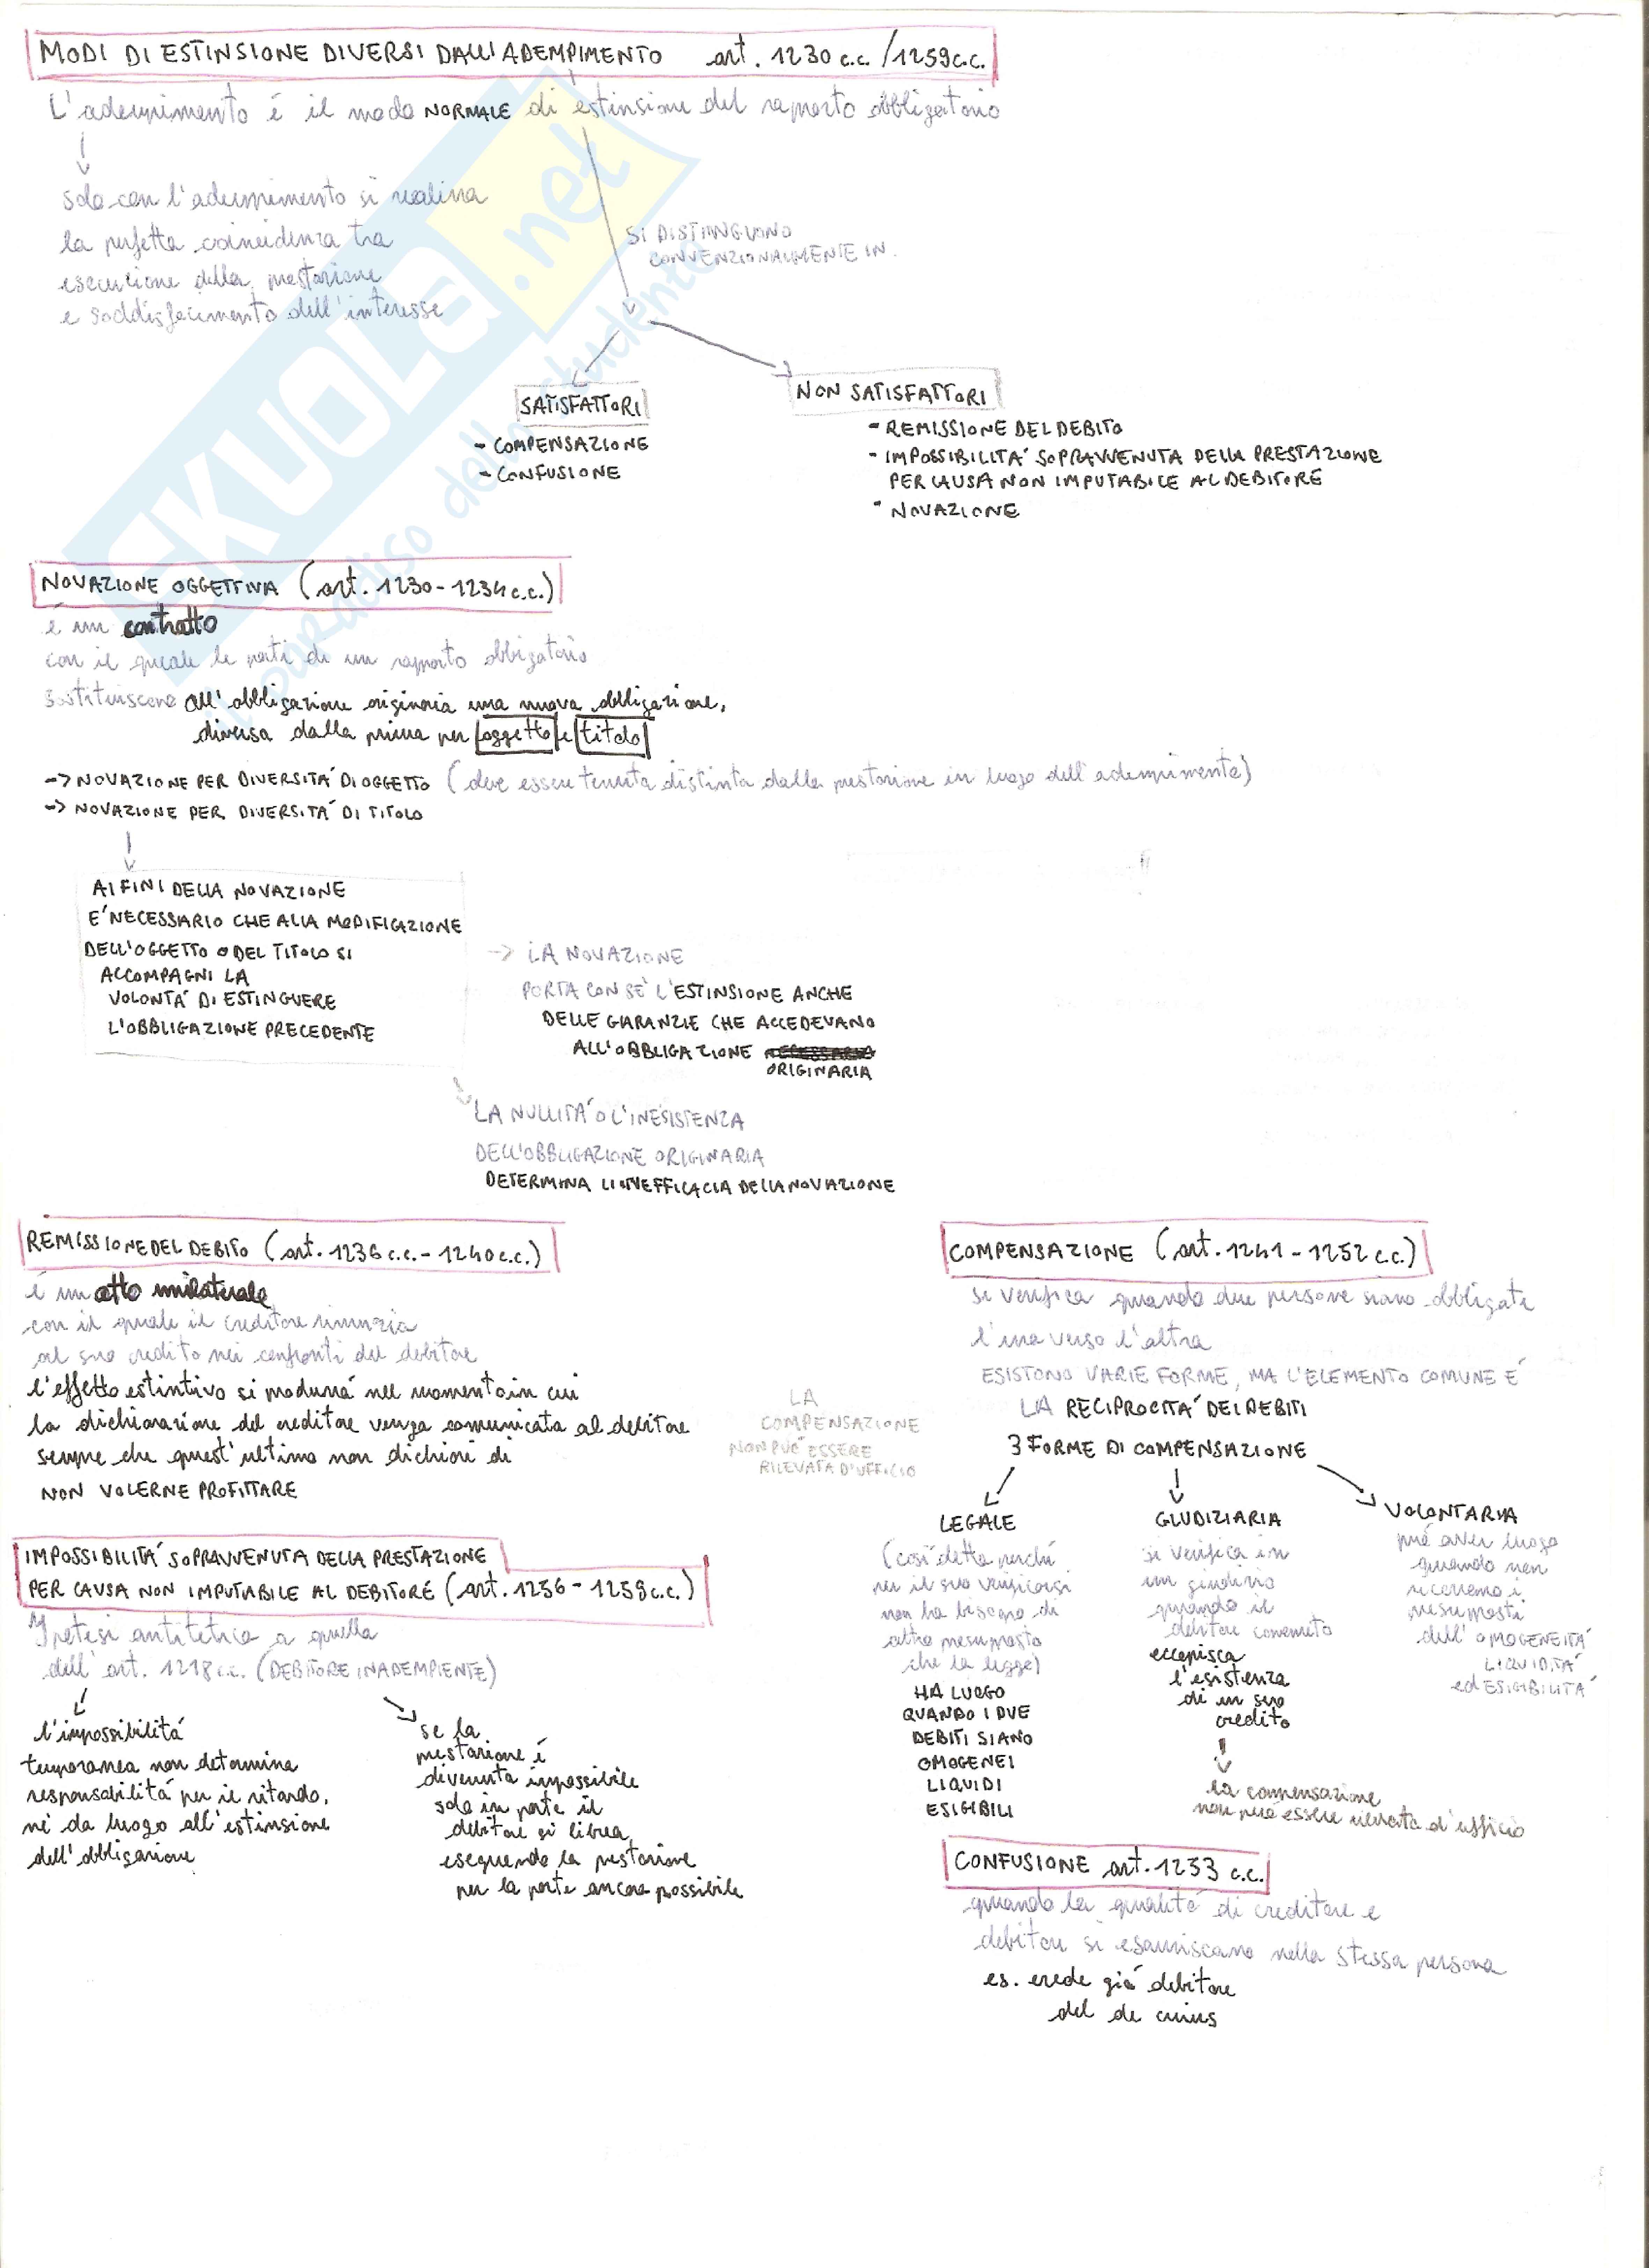 MODI DI ESTINSIONE DIVERSI DALL'ADEMPIMENTO art. 1230 c.c. /1259 c.c.
L'adempimento é il modo NORMALE di estinsione del rapporto obbligatorio
solo con l'adempimento si realizza
la perfetta coincidenza tra
esecuzione della prestazione
e soddisfacimento dell'interesse
SI DISTINGUONO
CONVENZIONALMENTE IN.
SATISFATTORI
- COMPENSAZIONE
- CONFUSIONE
NON SATISFATTORI
- REMISSIONE DEL DEBITO
- IMPOSSIBILITA' SOPRAVVENUTA DELLA PRESTAZIONE
PER CAUSA NON IMPUTABILE AL DEBITORE
- NOVAZIONE
SKUOLa.net
il paradiso dello studente
NOVAZIONE OGGETTIVA (art. 1230-1234 c.c.)
é un contratto
con il quale le parti di un rapporto obbligatorio
sostituiscono all'obbligazione originaria una nuova obbligazione,
diversa dalla prima per oggetto e titolo
-> NOVAZIONE PER DIVERSITA' DI OGGETTO (deve essere tenuta distinta dalla prestazione in luogo dell'adempimento)
-> NOVAZIONE PER DIVERSITA' DI TITOLO
AI FINI DELLA NOVAZIONE
E' NECESSARIO CHE ALLA MODIFICAZIONE
DELL'OGGETTO O DEL TITOLO SI
ACCOMPAGNI LA
VOLONTA' DI ESTINGUERE
L'OBBLIGAZIONE PRECEDENTE
-> LA NOVAZIONE
PORTA CON SE' L'ESTINSIONE ANCHE
DELLE GARANZIE CHE ACCEDEVANO
ALL'OBBLIGAZIONE
ORIGINARIA
LA NULLITA' O L'INESISTENZA
DELL'OBBLIGAZIONE ORIGINARIA
DETERMINA L'INEFFICACIA DELLA NOVAZIONE
REMISSIONE DEL DEBITO (art. 1236 c.c. - 1240 c.c.)
é un atto unilaterale
con il quale il creditore rinunzia
al suo credito nei confronti del debitore
l'effetto estintivo si produrrá nel momento in cui
la dichiarazione del creditore venga comunicata al debitore
sempre che quest'ultimo non dichiari di
NON VOLERNE PROFITTARE
IMPOSSIBILITA' SOPRAVVENUTA DELLA PRESTAZIONE
PER CAUSA NON IMPUTABILE AL DEBITORE (art. 1256 - 1259 c.c.)
Ipotesi antitetica a quella
dell'art. 1218 c.c. (DEBITORE INADEMPIENTE)
l'impossibilitá
temporanea non determina
responsabilitá per il ritardo,
né da luogo all'estinsione
dell'obbligazione
se la
prestazione é
divenuta impossibile
solo in parte il
debitore si libera
eseguendo la prestazione
per la parte ancora possibile
COMPENSAZIONE (art. 1241 - 1252 c.c.)
si verifica quando due persone siano obbligate
l'una verso l'altra
ESISTONO VARIE FORME, MA L'ELEMENTO COMUNE E'
LA RECIPROCITA' DEI DEBITI
3 FORME DI COMPENSAZIONE
LA
COMPENSAZIONE
NON PUO' ESSERE
RILEVATA D'UFFICIO
LEGALE
(cosí detta perché
per il suo verificarsi
non ha bisogno di
altro presupposto
che la legge)
HA LUOGO
QUANDO I DUE
DEBITI SIANO
OMOGENEI
LIQUIDI
ESIGIBILI
GIUDIZIARIA
si verifica in
un giudizio
quando il
debitore convenuto
eccepisca
l'esistenza
di un suo
credito
la compensazione
non puó essere rilevata d'ufficio
VOLONTARIA
puó aver luogo
quando non
ricorrono i
presupposti
dell'OMOGENEITÁ
LIQUIDITÁ
ed ESIGIBILITÁ
CONFUSIONE art. 1253 c.c.
quando la qualitá di creditore e
debitore si esauriscano nella stessa persona
es. erede giá debitore
del de cuius